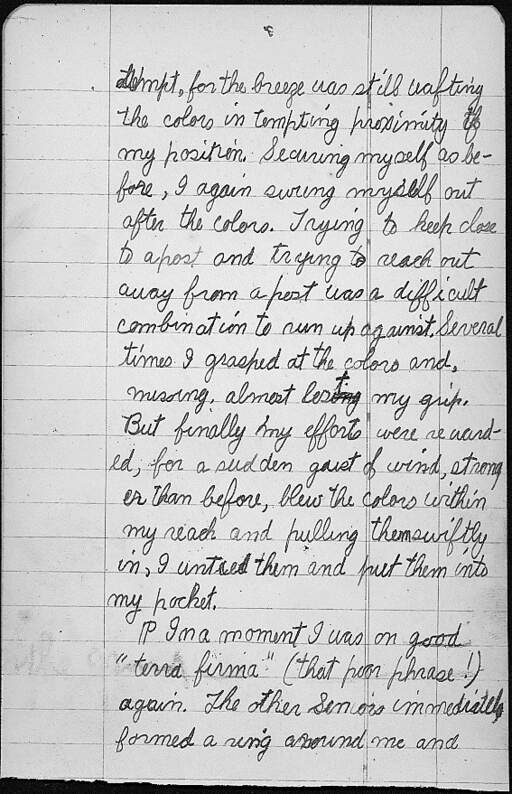 3
attempt, for the breeze was still wafting
the colors in tempting proximity to
my position. Securing myself as be-
fore, I again swung myself out
after the colors. Trying to keep close
to a post and trying to reach out
away from a post was a difficult
combination to run up against. Several
times I grasped at the colors and,
missing, almost lost my grip.
But finally my efforts were reward-
ed, for a sudden gust of wind, strong
er than before, blew the colors within
my reach and pulling them swiftly
in, I untied them and put them into
my pocket.
¶ In a moment I was on good
"terra firma" (that poor phrase!)
again. The other Seniors immediately
formed a ring around me and